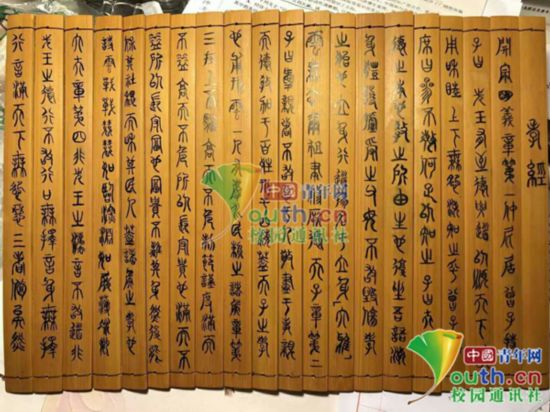 孝經
開宗明義章第一仲尼居曾子侍
子曰先王有至德要道以順天下
用和睦上下無怨汝知之乎曾子
席曰參不敏何足以知之子曰夫孝
德之本也教之所由生也復坐吾語汝
身體髮膚受之父母不敢毀傷孝
之始也立身行道立身大雅
雲無念爾祖聿脩厥德天子章第二
子曰愛親者不敢敬親
而德教加于百姓刑于四海蓋天子之孝
也甫刑雲一人有慶兆民賴之諸侯章第
三在上不驕高而不危制節謹度滿而
不溢高而不危所以長守貴也滿而不
溢所以長守富也富貴不離其身然後能
保其社稷而和其民人蓋諸侯之孝也
詩雲戰戰兢兢如臨深淵如履薄冰卿
大夫章第四非先王之法服不敢服非
先王之德行不敢行口無擇言身無擇
行言滿天下無口過三者備矣然
中國青年网
youth.cn
校园通讯社
中國青年网
youth.cn
校园通讯社